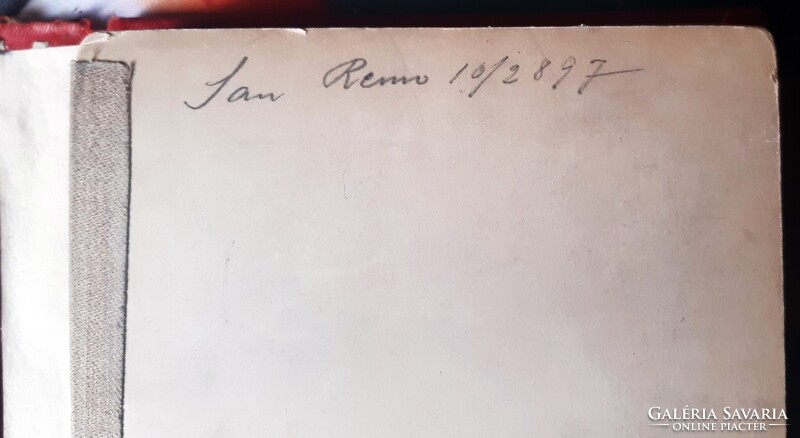 San Remo 10/2 897
GALÉRIA SAVARIA
ONLINE PIACTÉR